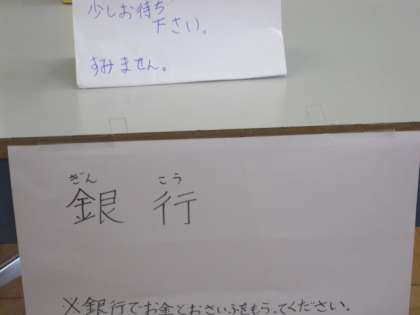 少しお待ち
下さい。
すみません。
ぎん こう
銀 行
※銀行でお金とおさいふをもらってください。